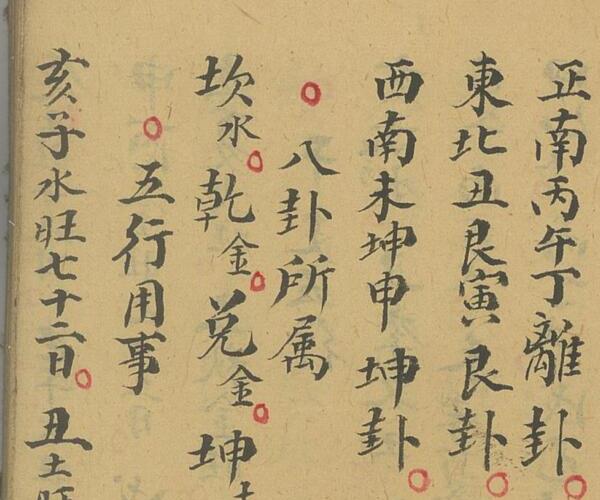 正南丙午丁離卦
東北丑艮寅艮卦
西南未坤申坤卦
八卦所属
坎水乾金兌金坤土
五行用事
亥子水旺七十二日丑土旺